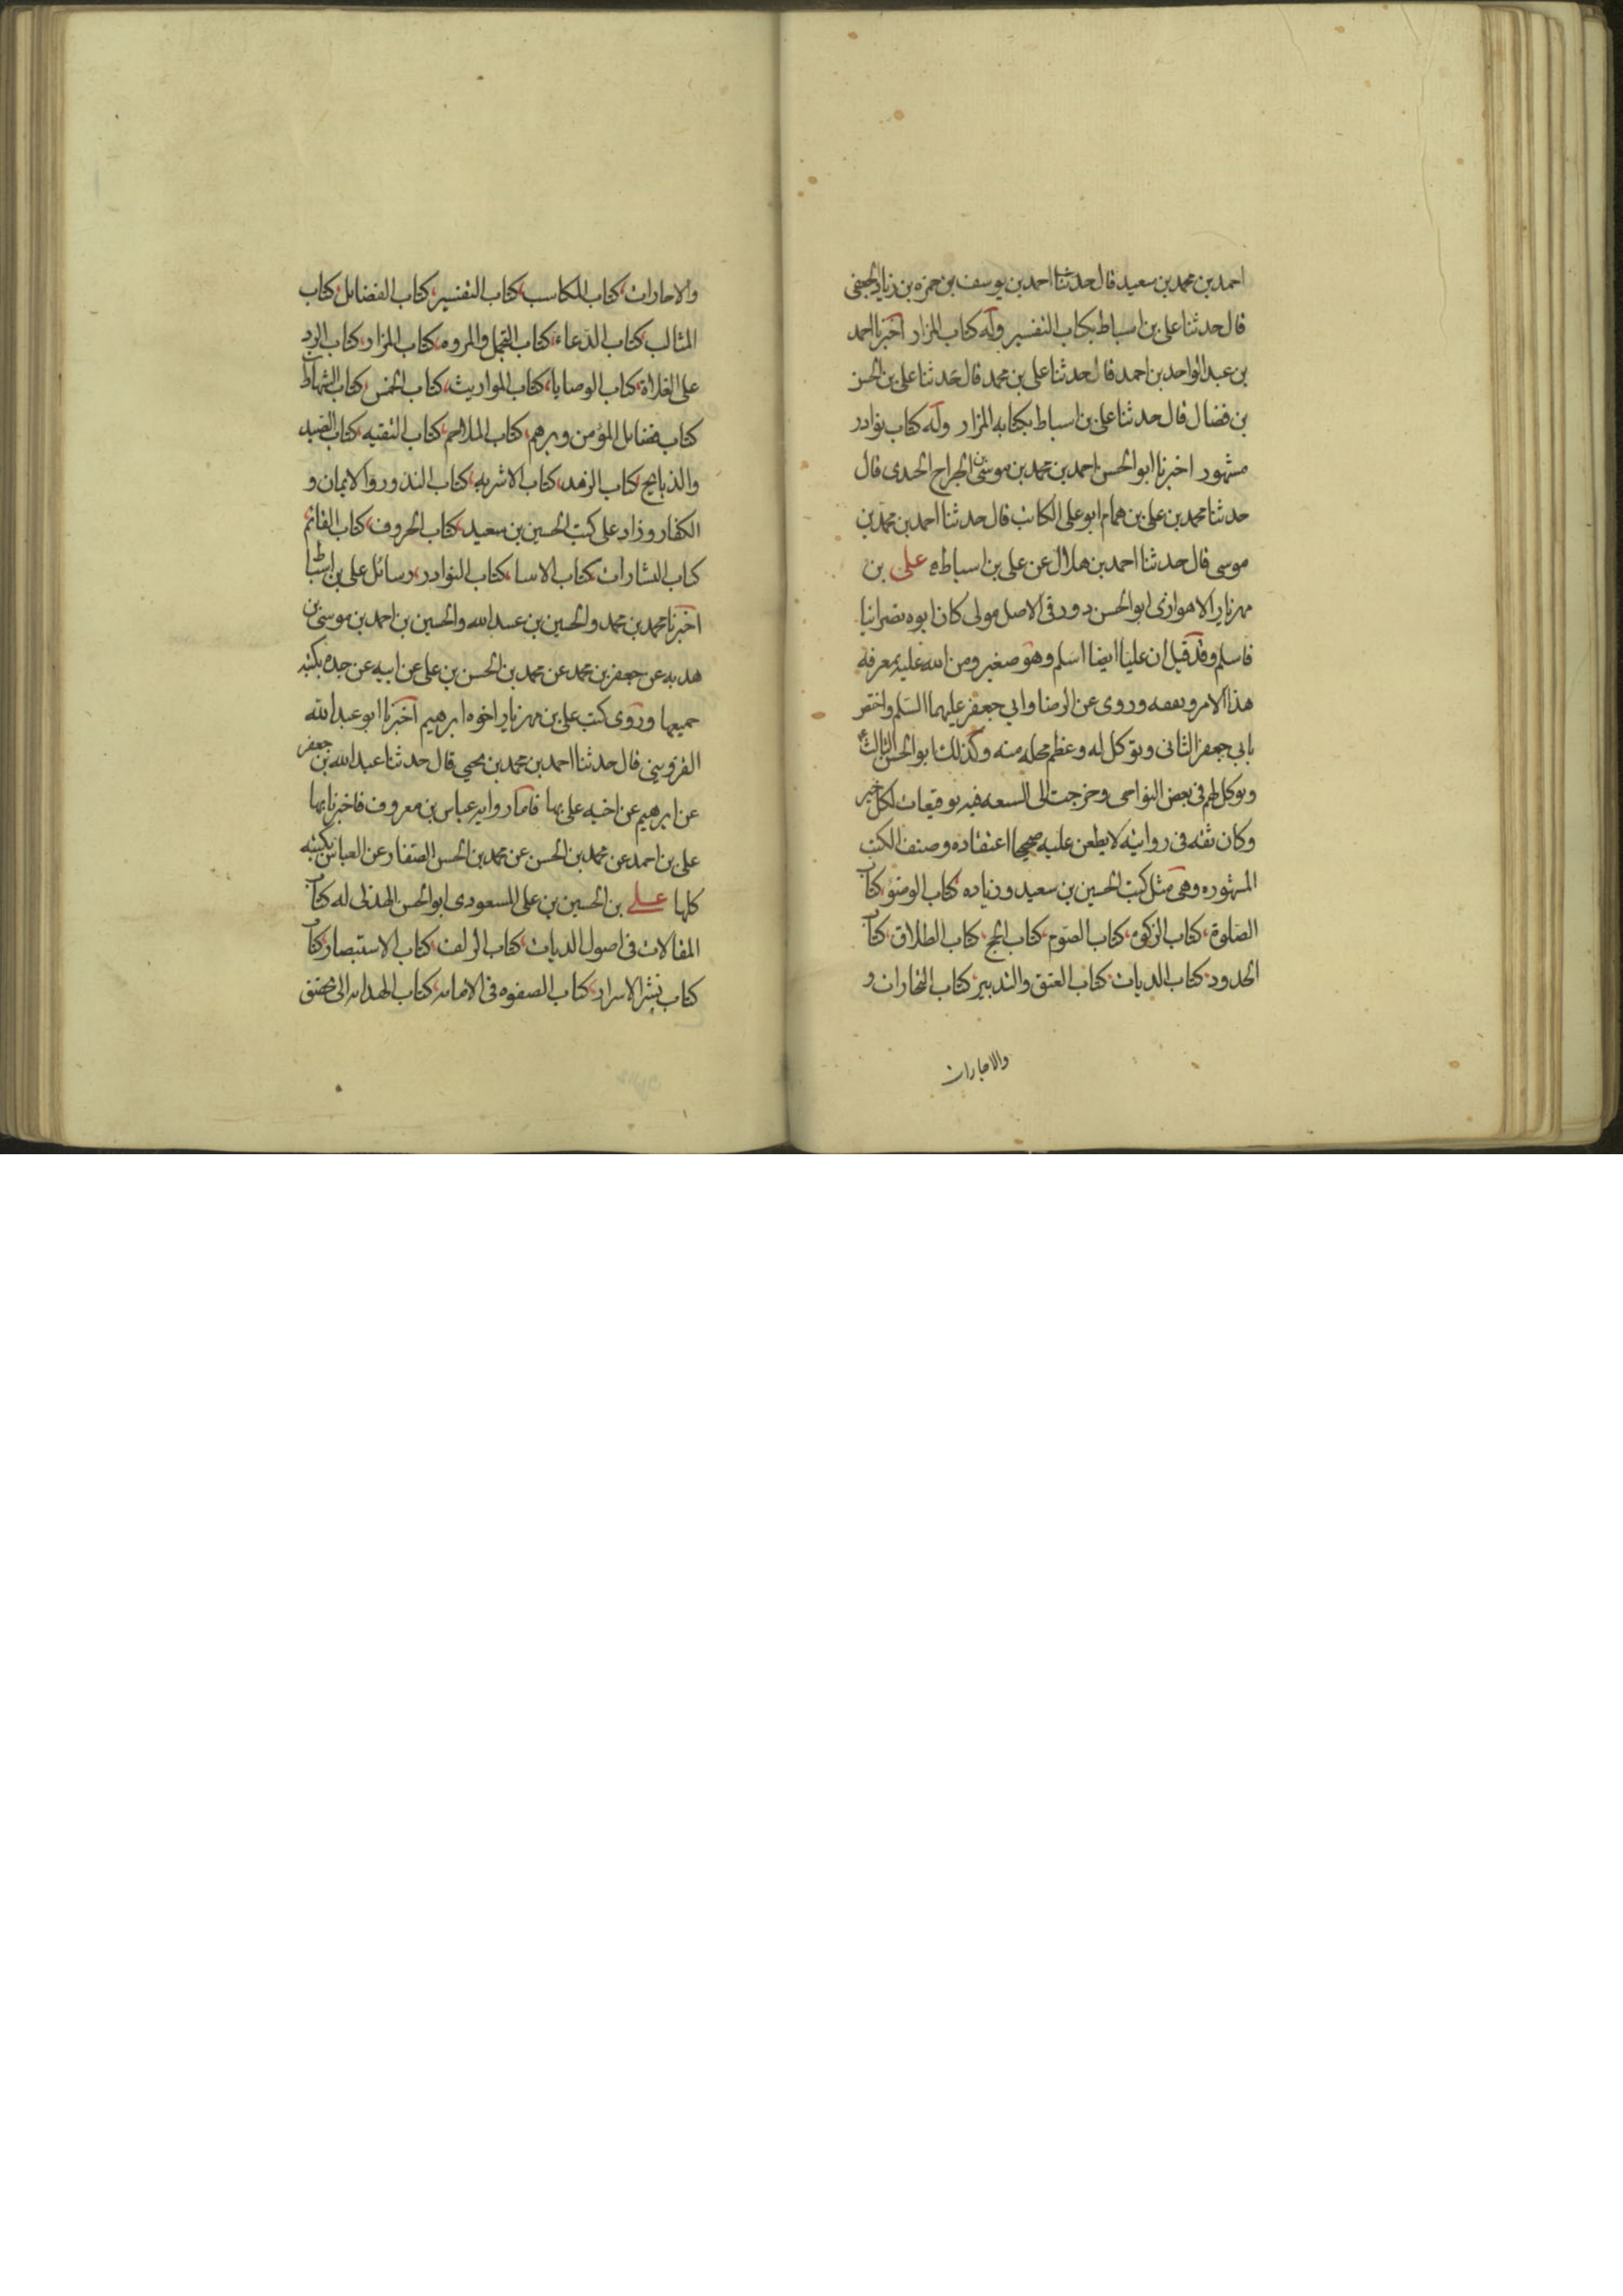 احمد بن محمد بن سعيد قال حدثنا احمد بن يوسف بن حمزه بن زياد الجعفى
قال حدثنا على بن اسباط بكتاب التفسير وله كتاب المزار اخبرنا احمد
بن عبد الواحد بن احمد قال حدثنا على بن محمد قال حدثنا على بن الحسن
بن فضال قال حدثنا على بن اسباط بكتابه المزار وله كتاب نوادر
مشهور اخبرنا ابو الحسن احمد بن محمد بن موسى بن الجراح الجندى قال
حدثنا محمد بن على بن همام ابو على الكاتب قال حدثنا احمد بن محمد بن
موسى قال حدثنا احمد بن هلال عن على بن اسباط ه على بن
مهزيار الاهوازى ابو الحسن دورقى الاصل مولى كان ابوه نصرانيا
فاسلم وقد قيل ان عليا ايضا اسلم وهو صغير ومن الله عليه بمعرفة
هذا الامر وتفقه وروى عن الرضا وابى جعفر عليهما السلم واختص
بابى جعفر الثانى وتوكل له وعظم محله منه وكذلك ابو الحسن الثالث ع
وتوكل لهم فى بعض النواحى وخرجت الى الشيعه فيه توقيعات لكل خير
وكان ثقه فى روايته لا يطعن عليه صحيحا اعتقاده وصنف الكتب
المشهوره وهى مثل كتب الحسين بن سعيد وزياده كتاب الوضو كتاب
الصلوة كتاب الزكوه كتاب الصوم كتاب الحج كتاب الطلاق كتاب
الحدود كتاب الديات كتاب العتق والتدبير كتاب التجارات و
والاجارات
والاجارات كتاب المكاسب كتاب التفسير كتاب الفضائل كتاب
المثالب كتاب الدعاء كتاب التجمل والمروه كتاب المزار كتاب الرد
على الغلاة كتاب الوصايا كتاب المواريث كتاب الخمس كتاب الشهادات
كتاب فضائل المؤمن وبرهم كتاب الملاحم كتاب التقيه كتاب الصيد
والذبايح كتاب الزهد كتاب الاشربه كتاب النذور والايمان و
الكفار وزاد على كتب الحسين بن سعيد كتاب الحروف كتاب القائم
كتاب البشارات كتاب الانبيا كتاب النوادر رسائل على بن اسباط
اخبرنا محمد بن محمد والحسين بن عبيد الله والحسين بن احمد بن موسى بن
هديه عن جعفر بن محمد عن محمد بن الحسن بن على عن ابيه عن جده بكتبه
جميعها وروى كتب على بن مهزيار اخوه ابرهيم اخبرنا ابو عبد الله
القزوينى قال حدثنا احمد بن محمد بن يحيى قال حدثنا عبد الله بن جعفر
عن ابرهيم عن اخيه على بها فاما روايه عباس بن معروف فاخبرنا بها
على بن احمد عن محمد بن الحسن عن محمد بن الحسن الصفار عن العباس بكتبه
كلها على بن الحسين بن على المسعودى ابو الحسن الهذلى له كتاب
المقالات فى اصول الديات كتاب الزلف كتاب الاستبصار كتاب
كتاب نشر الاسرار كتاب الصفوه فى الامامه كتاب الهدايه الى تحقيق